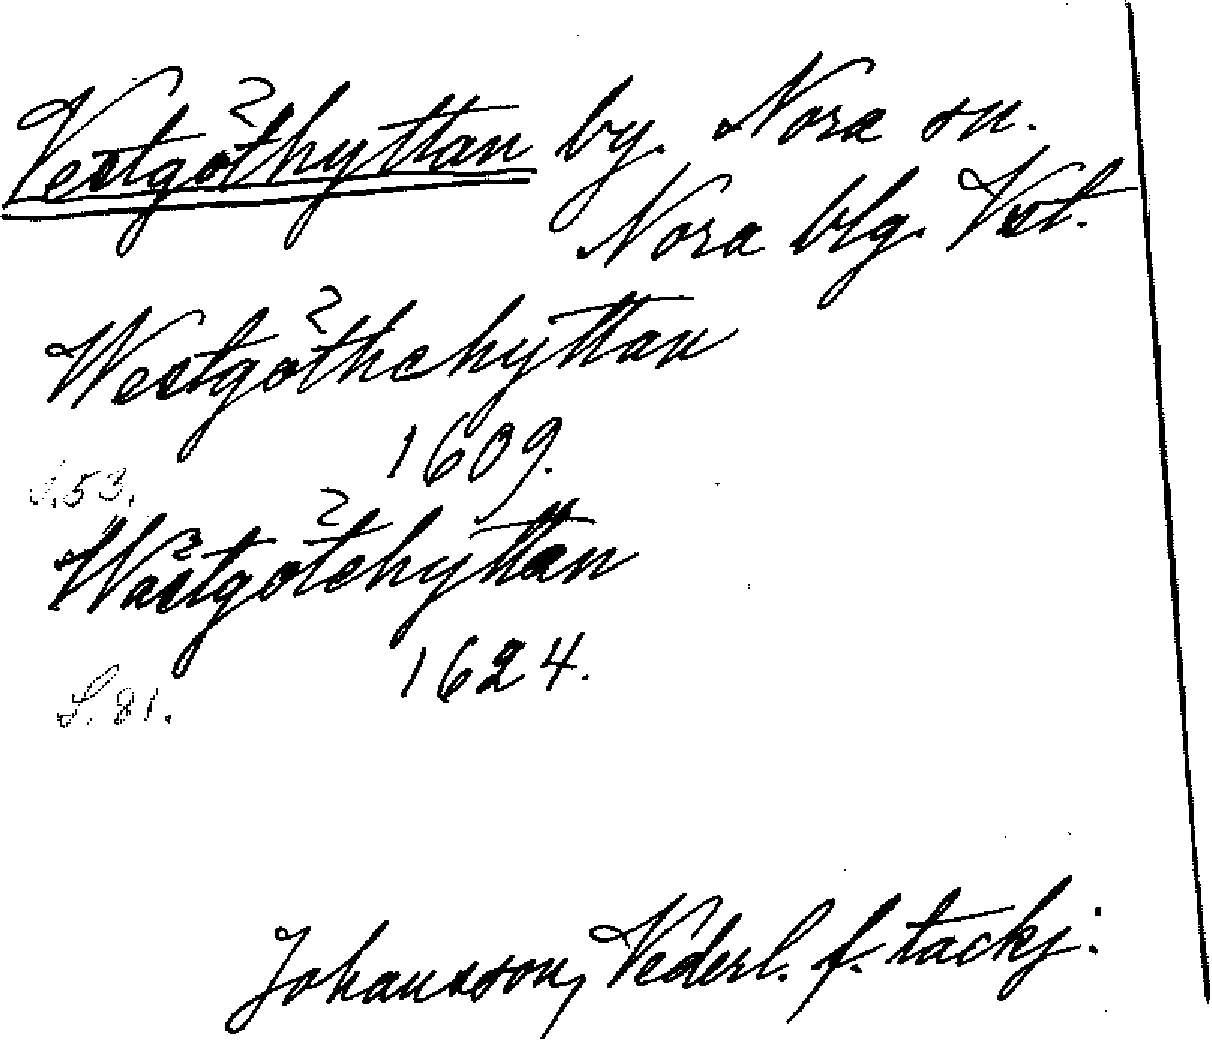 Vestgöthyttan by. Nora sn.
Nora blg. Vst.
Westgöthehyttan
1609.
S. 53.
Wästgötehyttan
1624.
S. 81.
Johansson, Vederl. f. tackj: